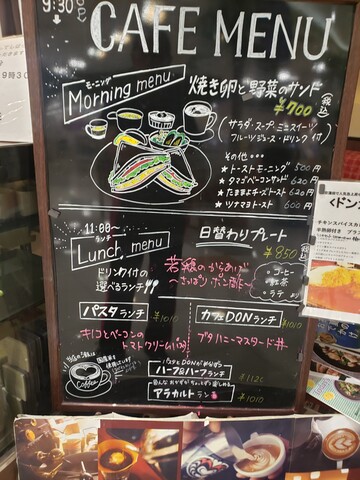 9:30
CAFE MENU
モーニング
Morning menu
焼き卵と野菜のサンド
¥700
税込
(サラダ・スープ・ミニスイーツ
フルーツジュース・ドリンク付)
その他・・・
★トーストモーニング 500円
★タマゴベーコンサンド 620円
★たままよチーズトースト 620円
★ツナマヨトースト 600円
11:00～
ランチ
Lunch menu
ドリンク付の
選べるランチ
日替わりプレート
¥850
税込
若鶏のからあげ
～さっぱりポン酢～
・コーヒー
・紅茶
・ラテ
パスタランチ ¥1010
キノコとベーコンの
トマトクリームパスタ
カフェDONランチ ¥1010
ブタハニーマスタード丼
Coffee
パスタとDONがめちゃう
ハーフ&ハーフランチ
¥1120
アラカルトランチ
¥1010
くドン
チキンスパイスカ
半熟卵付き